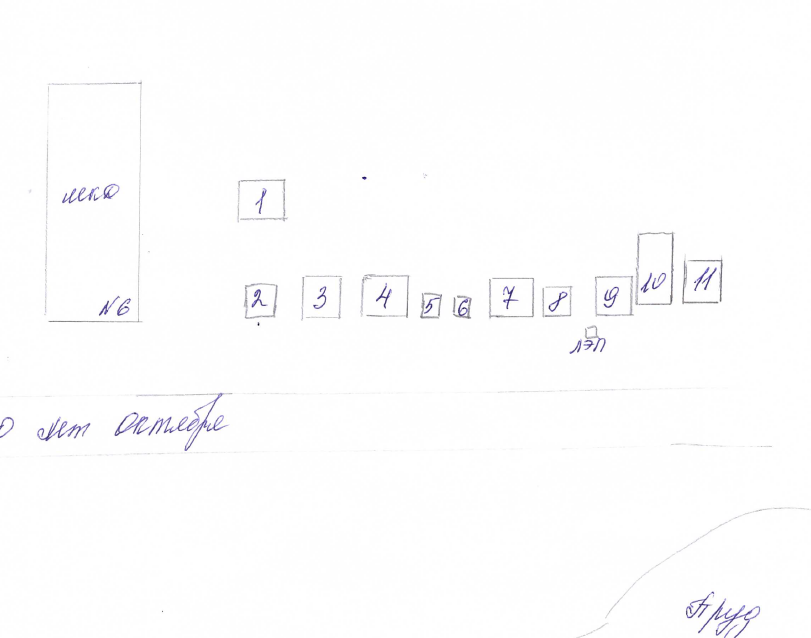 МКД
№6
1
2
3
4
5
6
7
8
9
10
11
ЛЭП
0 лет Октября
Пруд